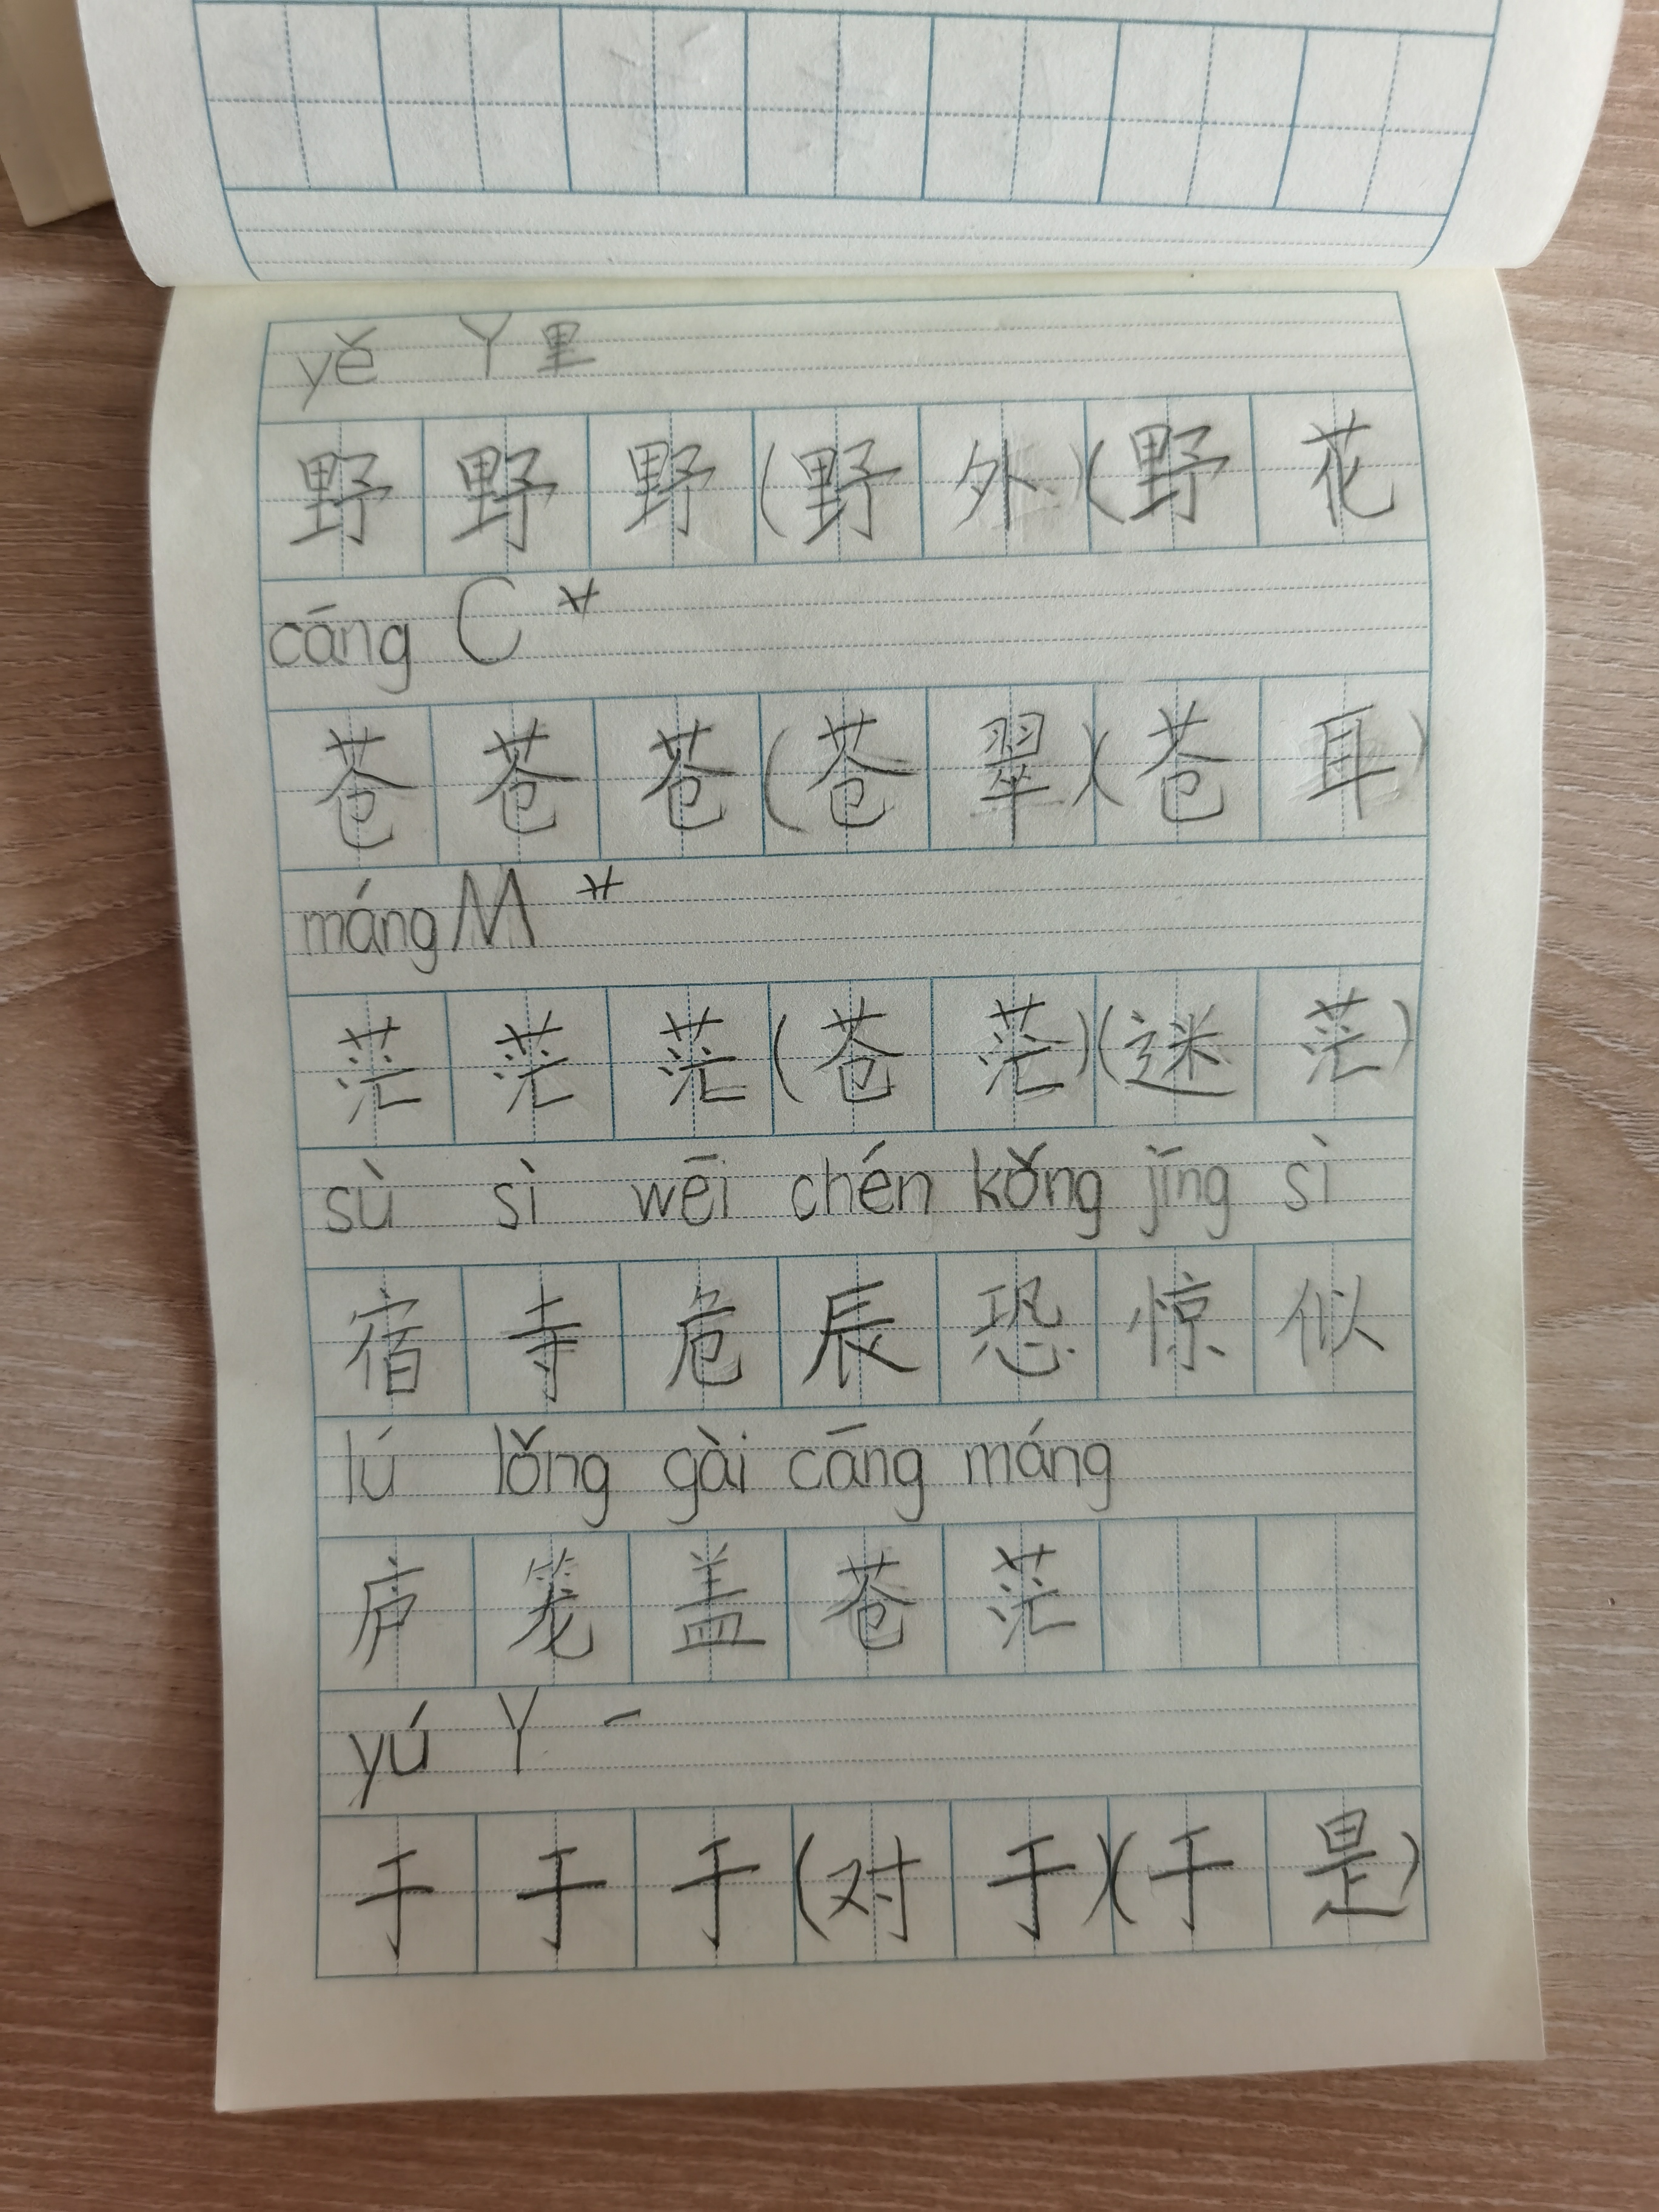 yě Y 里
野 野 野 (野 外) (野 花
cāng C 艹
苍 苍 苍 (苍 翠) (苍 耳)
máng M 艹
茫 茫 茫 (苍 茫) (迷 茫)
sù sì wēi chén kǒng jīng sì
宿 寺 危 辰 恐 惊 似
lú lǒng gài cāng máng
庐 笼 盖 苍 茫
yú Y 一
于 于 于 (对 于) (于 是)